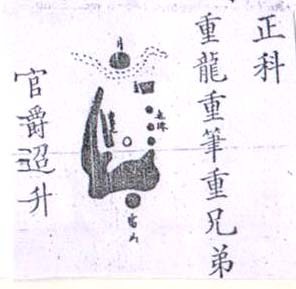 正科
重龍重筆重兄弟
官爵迢升